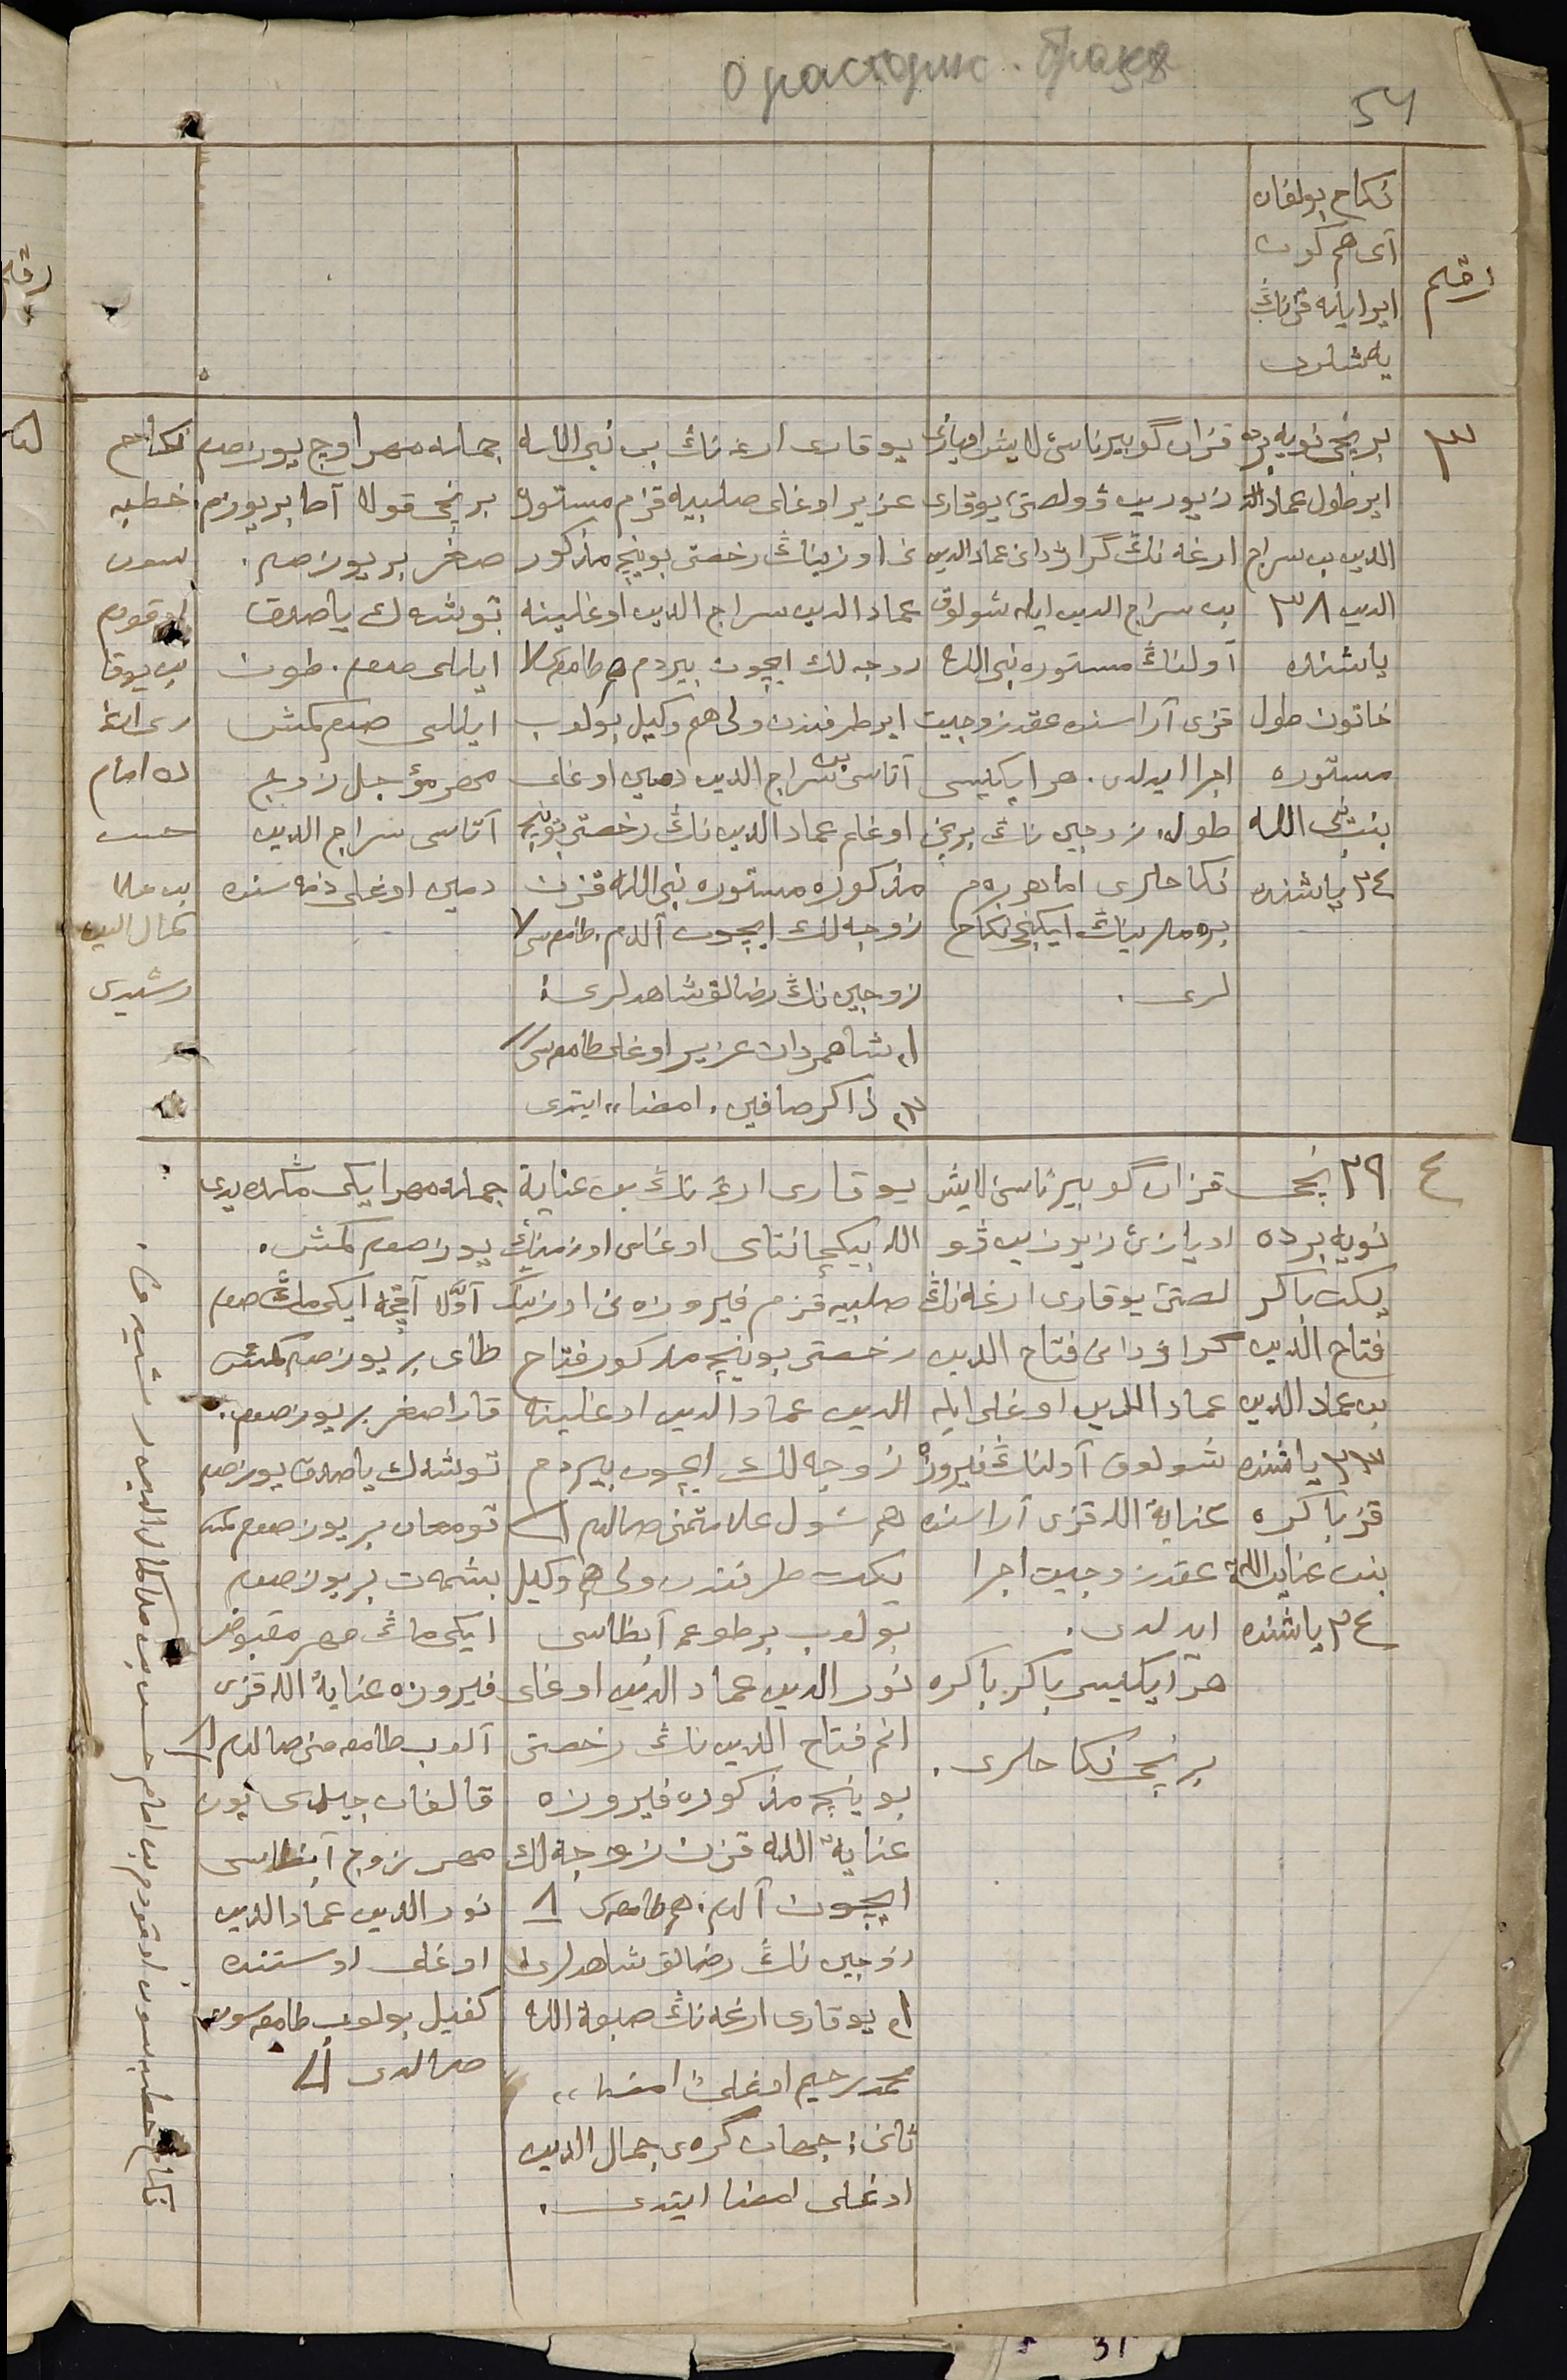 о расторж. брака
54
رقم
نكاح بولغان
آی هم كون
ایر ایله قزنڭ
یاشلری
٣
برنچی نویه‌برده
ایر طول عماد
الدین بن سراج
الدین ٣٨
یاشنده
خاتون طول
مستوره
بنت نبی الله
٣٤ یاشنده
قزان گوبیرناسی لایش اویازی
زیوزیب ڤولصتی یوقاری
ارغه نڭ گراژدانی عماد الدین
بن سراج الدین ایله شولوق
آولنڭ مستوره نبی الله
قزی آراسنده عقد زوجیت
اجرا ایدلدی. هر ایكیسی
طول، زوجین نڭ برنچی
نكاحلری اما هر
برملرینڭ ایكنچی نكاح
لری.
یوقاری ارغه نڭ بن نبی الله
عزیر اوغلی صلبیه قزم مستوره
نی اوزیناڭ رخصتی بوینچه مذكور
عماد الدین سراج الدین اوغلینه
زوجه لك ایچون بیردم هم طامغام
ایر طرفندن ولی هم وكیل بولوب
آتاسی بن سراج الدین اوغلی
اوغلم عماد الدین ناڭ رخصتی بوینچه
مذكوره مستوره نبی الله قزن
زوجه لك ایچون آلدم. طامغام
زوجین نڭ رضالق شاهدلری:
١، شاهمردان عزیر اوغلی طامغاسی
٢، ذاكر صافین. امضا ایتدی
جمله مهر اوچ یوز صوم
برنچی قولا آط بر یوز صوم
صغر بر یوز صوم.
توشه ك یاصدق
ایللی صوم. طون
ایللی صوم كمش
مهر مؤجل زوج
آتاسی سراج الدین
اوغلی ذمه سنده
نكاح
خطبه
سون
اوقودم
بن یوقا
ری ارغه
ده امام
حسن
بن ملا
كمال الدین
رشیدی
٤
٢٩ نچی
نویه‌برده
یكت باكر
فتاح الدین
بن عماد الدین
٢٣ یاشنده
قز باكره
بنت عنایة الله
٢٤ یاشنده
قزان گوبیرناسی لایش
اویازی زیوزیب ڤو
لصتی یوقاری ارغه نڭ
گراژدانی فتاح الدین
عماد الدین اوغلی ایله
شولوق آولناڭ فیروزه
عنایة الله قزی آراسنده
عقد زوجیت اجرا
ایدلدی.
هر ایكیسی باكر باكره
برنچی نكاحلری.
یوقاری ارغه ناڭ بن عنایة
الله بیكچانتای اوغلی اوزمنڭ
صلبیه قزم فیروزه نی اوزینڭ
رخصتی بوینچه مذكور فتاح
الدین عماد الدین اوغلینه
زوجه لك ایچون بیردم
هم شول علامتمنی صالدم
یكت طرفندن ولی هم وكیل
بولوب برطوغمه آبطاسی
نور الدین عماد الدین اوغلی
انم فتاح الدین ناڭ رخصتی
بوینچه مذكوره فیروزه
عنایة الله قزن زوجه لك
ایچون آلدم. هم طامغام
زوجین ناڭ رضالق شاهدلری
١، یوقاری ارغه ناڭ صبغة الله
محمد رحیم اوغلی امضا
ثانی: جهان گرای جمال الدین
اوغلی امضا ایتدی.
جمله مهر ایكی مڭده یدی
یوز صوم كمش.
اولا آقچه ایكی ماڭ صوم
طای بر یوز صوم كمش
قارا صغر بر یوز صوم.
توشه ك یاصدق یوز صوم
بر یوز صوم كمش
بر یوز صوم
ایكی ماڭ مهر مقبوض
فیروزه عنایة الله قزی
آلوب طامغه منی صالدم
قالغان جیدی یوز
مهر زوج آبطاسی
نور الدین عماد الدین
اوغلی اوستنده
كفیل بولوب طامغه سون
صالدی
نكاح خطبه سون اوقودم بن امام حسن بن ملا كمال الدین رشیدی.
31